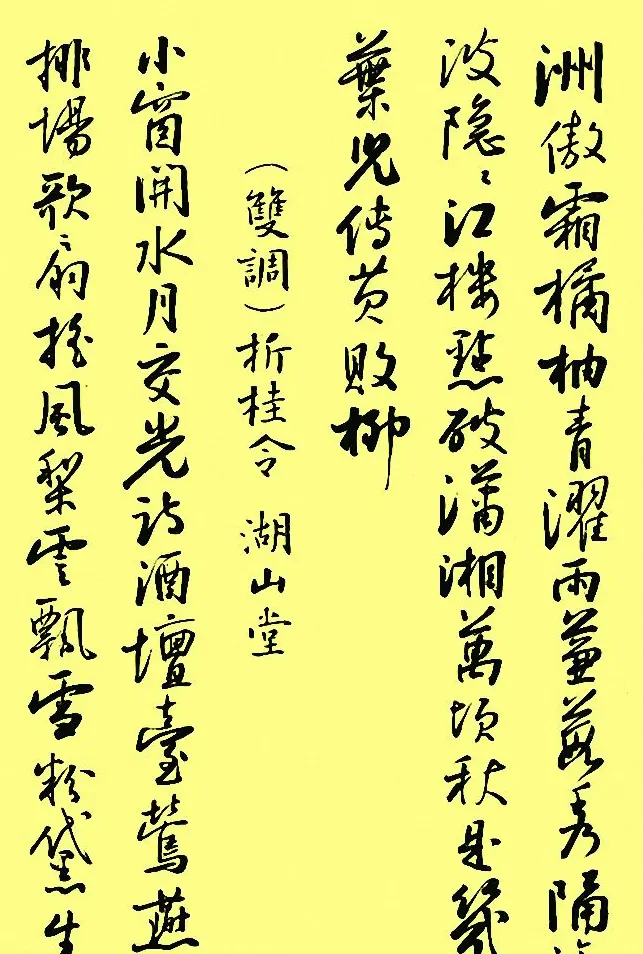 洲傲霜橘柚青濯雨蒹葭秀隔
波隐〻江楼點破瀟湘萬頃秋是幾
葉兒傳黄敗柳
（雙調）折桂令 湖山堂
小窗開水月交光詩酒壇臺鶯燕
排場歌扇摇風梨雲飄雪粉黛生